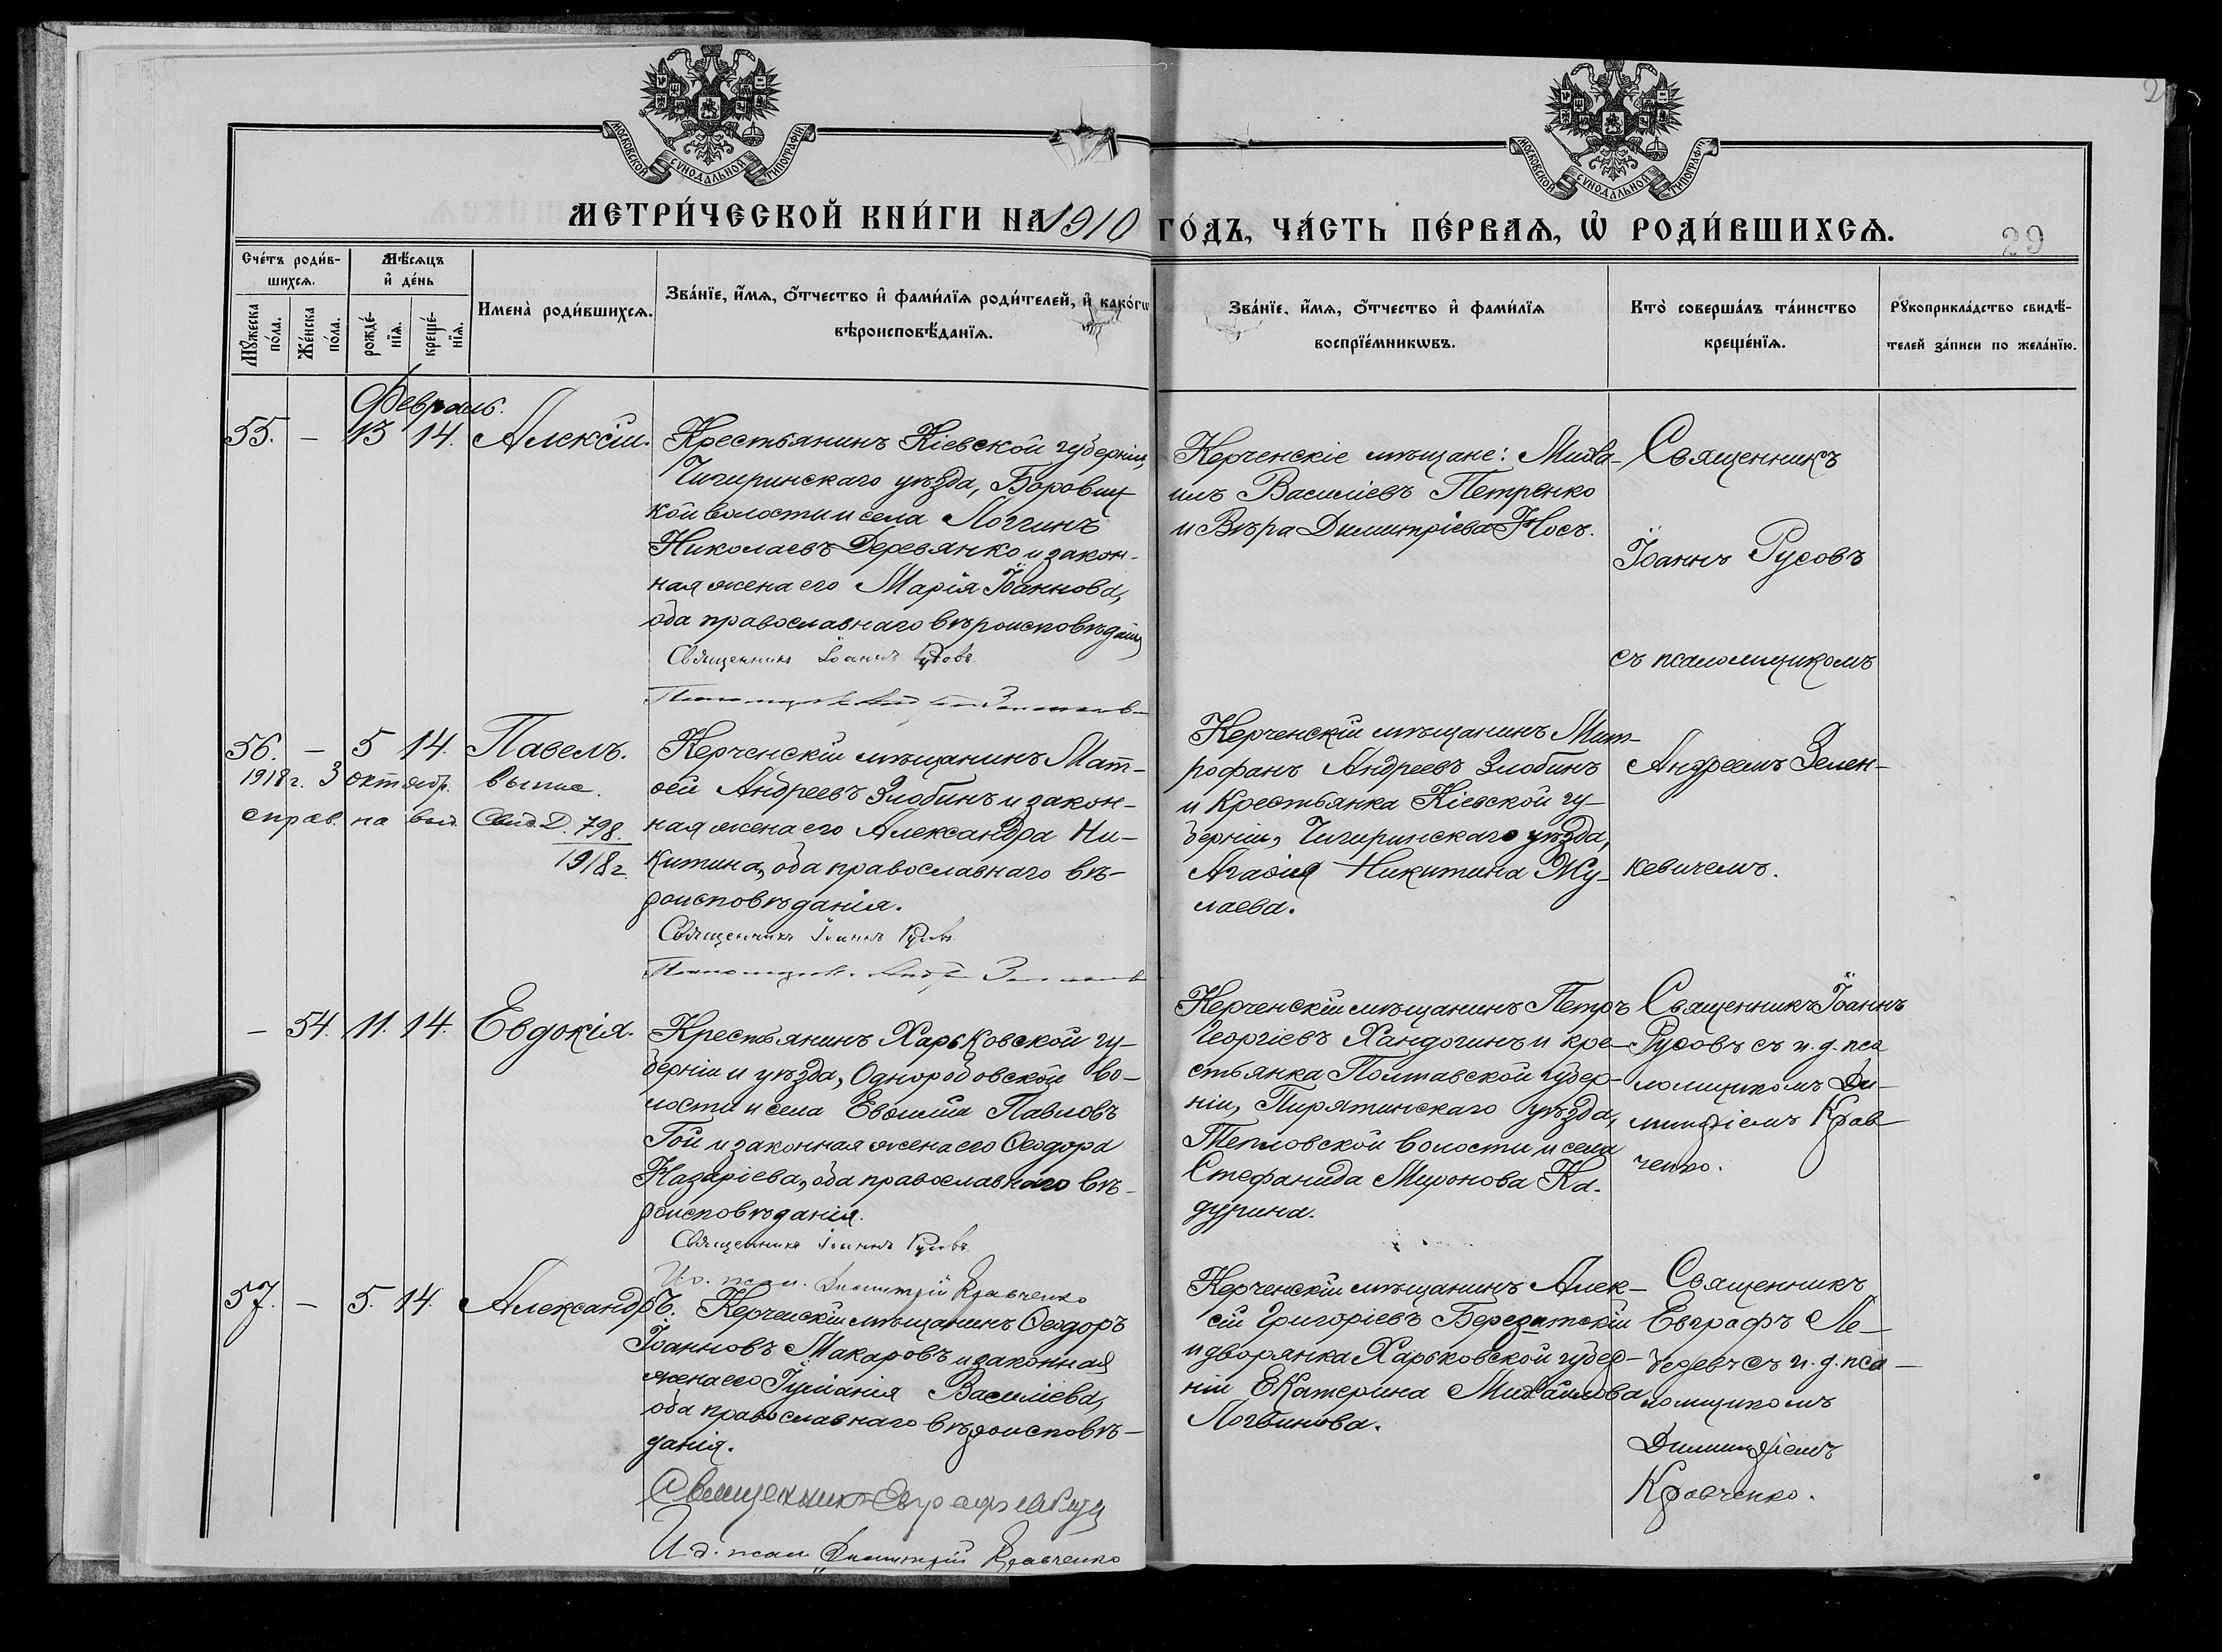 МОСКОВСКОЙ СУНОДАЛЬНОЙ ТИПОГРАФІИ
МОСКОВСКОЙ СУНОДАЛЬНОЙ ТИПОГРАФІИ
2
МЕТРИ́ЧЕСКОЙ КНИ́ГИ НА 1910 ГО́ДЪ, ЧА́СТЬ ПЕ́РВАѦ, Ѡ҆ РОДИ́ВШИХСѦ.
29
Сче́тъ роди́в-
шихсѧ.
Мꙋ́жеска
по́ла.
Же́нска
по́ла.
Мѣ́сѧцъ
и҆ де́нь
рожде́-
нїѧ.
креще́-
нїѧ.
Имена̀ роди́вшихсѧ.
Зва́нїе, и҆́мѧ, ѻ҆́тчество и҆ фами́лїѧ роди́телей, и҆ како́гѡ
вѣроисповѣ́данїѧ.
Зва́нїе, и҆́мѧ, ѻ҆́тчество и҆ фами́лїѧ
воспрїе́мникѡвъ.
Кто̀ соверша́лъ та́инство
креще́нїѧ.
Рꙋкоприкла́дство свидѣ́-
телей за́писи по жела́нїю.
Февраль.
55. — 13 14. Алексій.
Крестьянинъ Кіевской губерніи,
Чигиринскаго уѣзда, Боровиц-
кой волости и села Логгинъ
Николаевъ Деревянко и закон-
ная жена его Марія Іоаннова,
оба православнаго вѣроисповѣданія
Священникъ Іоаннъ Русовъ
Керченскіе мѣщане: Миха-
илъ Василіевъ Петренко
и Вѣра Димитріева Носъ.
Священникъ
Іоаннъ Русовъ
съ псаломщикомъ
Андреемъ Зелен-
кевичемъ.
56. — 5 14. Павелъ.
1918 г. 3 октября. выпис.
справ. на выд. Свид. Д. 798.
1918 г.
Керченскій мѣщанинъ Мат-
ѳей Андреевъ Злобинъ и закон-
ная жена его Александра Ни-
китина, оба православнаго вѣ-
роисповѣданія.
Священникъ Іоаннъ Русовъ
Керченскій мѣщанинъ Мит-
рофанъ Андреевъ Злобинъ
и крестьянка Кіевской гу-
берніи, Чигиринскаго уѣзда,
Агаѳія Никитина Жу-
лаева.
— 54. 11. 14. Евдокія.
Крестьянинъ Харьковской гу-
берніи и уѣзда, Однородовской во-
лости и села Евѳимій Павловъ
Гой и законная жена его Ѳеодора
Назаріева, оба православнаго вѣ-
роисповѣданія.
Священникъ Іоаннъ Русовъ
И. д. псал. Димитрій Кравченко
Керченскій мѣщанинъ Петръ
Георгіевъ Хандогинъ и кре-
стьянка Полтавской губер-
ніи, Пирятинскаго уѣзда,
Тепловской волости и села
Стефанида Миронова Ка-
дурина.
Священникъ Іоаннъ
Русовъ съ и. д. пса
ломщикомъ Ди-
митріемъ Крав
ченко.
57. — 5. 14. Александръ.
Керченскій мѣщанинъ Ѳеодоръ
Іоанновъ Макаровъ и законная
жена его Іуліанія Василіева,
оба православнаго вѣроисповѣ-
данія.
Священникъ Евграфъ
И. д. псал. Димитрій Кравченко
Керченскій мѣщанинъ Алек-
сій Григоріевъ Березатскій
и дворянка Харьковской губер-
ніи Екатерина Михайлова
Логвинова.
Священникъ
Евграфъ Ле-
бедевъ съ и. д. пса-
ломщикомъ
Димитріемъ
Кравченко.